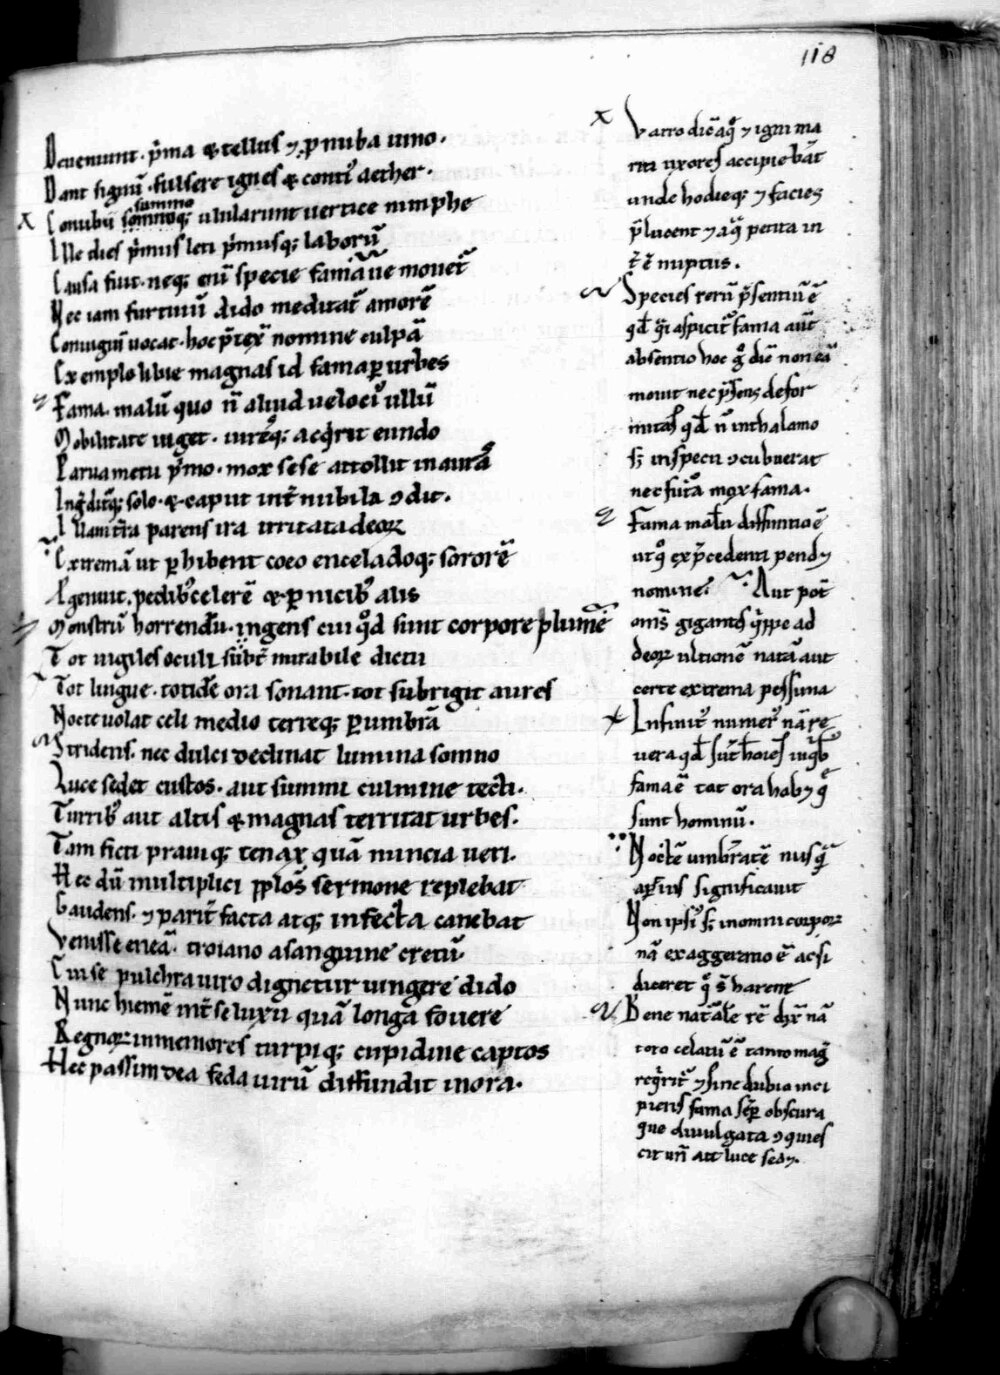 118
Deueniunt · p̄ma & tellus ⁊ ꝓnuba uino·
Dant signū · fulsere ignes & consci⁹ aether·
summo
X Conubii somnoq; ulularunt uertice nimphe
Ille dies p̄mus leti p̄musq; laborū
Causa fuit · neq; eni͂ specie famāue mouet᷑
Nec iam furtiuū dido meditat᷑ amorē
Coniugiū uocat · hoc p̄tex̄ nomine culpā
Extemplo libie magnas id fama ꝑ urbes
Fama · malū quo n̄ aliud uelociꝰ ullū
Mobilitate uiget · uiresq; acq̇rit eundo
Parua metu p̄mo · mox sese attollit in aurā
Ingᷓditꝰq; solo · & caput int̄ nubila ꝯdit·
Illam t̄ra parens ira irritata deoꝝ
Extremā ut ꝑhibent coeo enceladoq; sororē
Pgenuit · pedibꝰ celerē & ꝑnicibꝰ alis
Monstrū horrendū · ingens cui qͦd sunt corpore plumē
Tot uigiles oculi subt᷑ mirabile dictu
Tot lingue · totidē ora sonant · tot subrigit aures
Nocte uolat celi medio terreq; ꝑ umbrā
Stridens · nec dulci declinat lumina somno
Luce sedet custos · aut summi culmine tecti·
Turribꝰ aut altis & magnas territat urbes·
Tam ficti prauiq; tenax quā nuncia ueri·
Hec dū multiplici pp̄los sermone replebat
Gaudens · ⁊ parit᷑ facta atq; infecta canebat
Venisse eneā · troiano a sanguine cretū·
Cui se pulchra uiro dignetur iungere dido
Nunc hiemē int̄ se luxu quā longa fouere
Regnoꝝ inmemores turpiq; cupidine captos
Hec passim dea feda uirū diffundit in ora·
X Varro dic̄ aqᷓ ⁊ igni ma
riti uxores accipiebāt
unde hodieq; ⁊ faces
p̄lucent ⁊ aqᷓ petita in
t̄ ē nuptus·
Species rerū p̄sentiū ē
qd̄ q̇ aspicit᷑ fama aūt
absentio hoc gͦ dic̄ non eā
mouit nec p̄sens defor
mitas qd̄ n̄ in thalamo
s; in specu ꝯcubuerat
nec futᷓa mox fama·
Fama malū diffinitio ē
utqͦ ex p̄cedenti pend⁊
nomine· Aut pot̄
om̄s gigantes q̇ppe ad
deoꝝ ultionē natā aut
certe extrema pessima
X Infinitꝰ numerꝰ nā re
uera qd̄ st̄ hoies in qͥbꝰ
fama ē tot ora hab⁊ qͣ
sunt hominū·
Noctē umbᷓtē nusqᷓ
aptius significauit
Non ipsiꝰ s; in omni corpore
nā exaggeratio ē acsi
diceret qͦt s̄t harene
Bene natᷓalē rē dix̄ nā
toto celatū ē tanto mag̣
req̇rit᷑ ⁊ sine dubio inci
piens fama sēp obscura
que diuulgata ꝯquies
cit un̄ ait luce sed⁊·